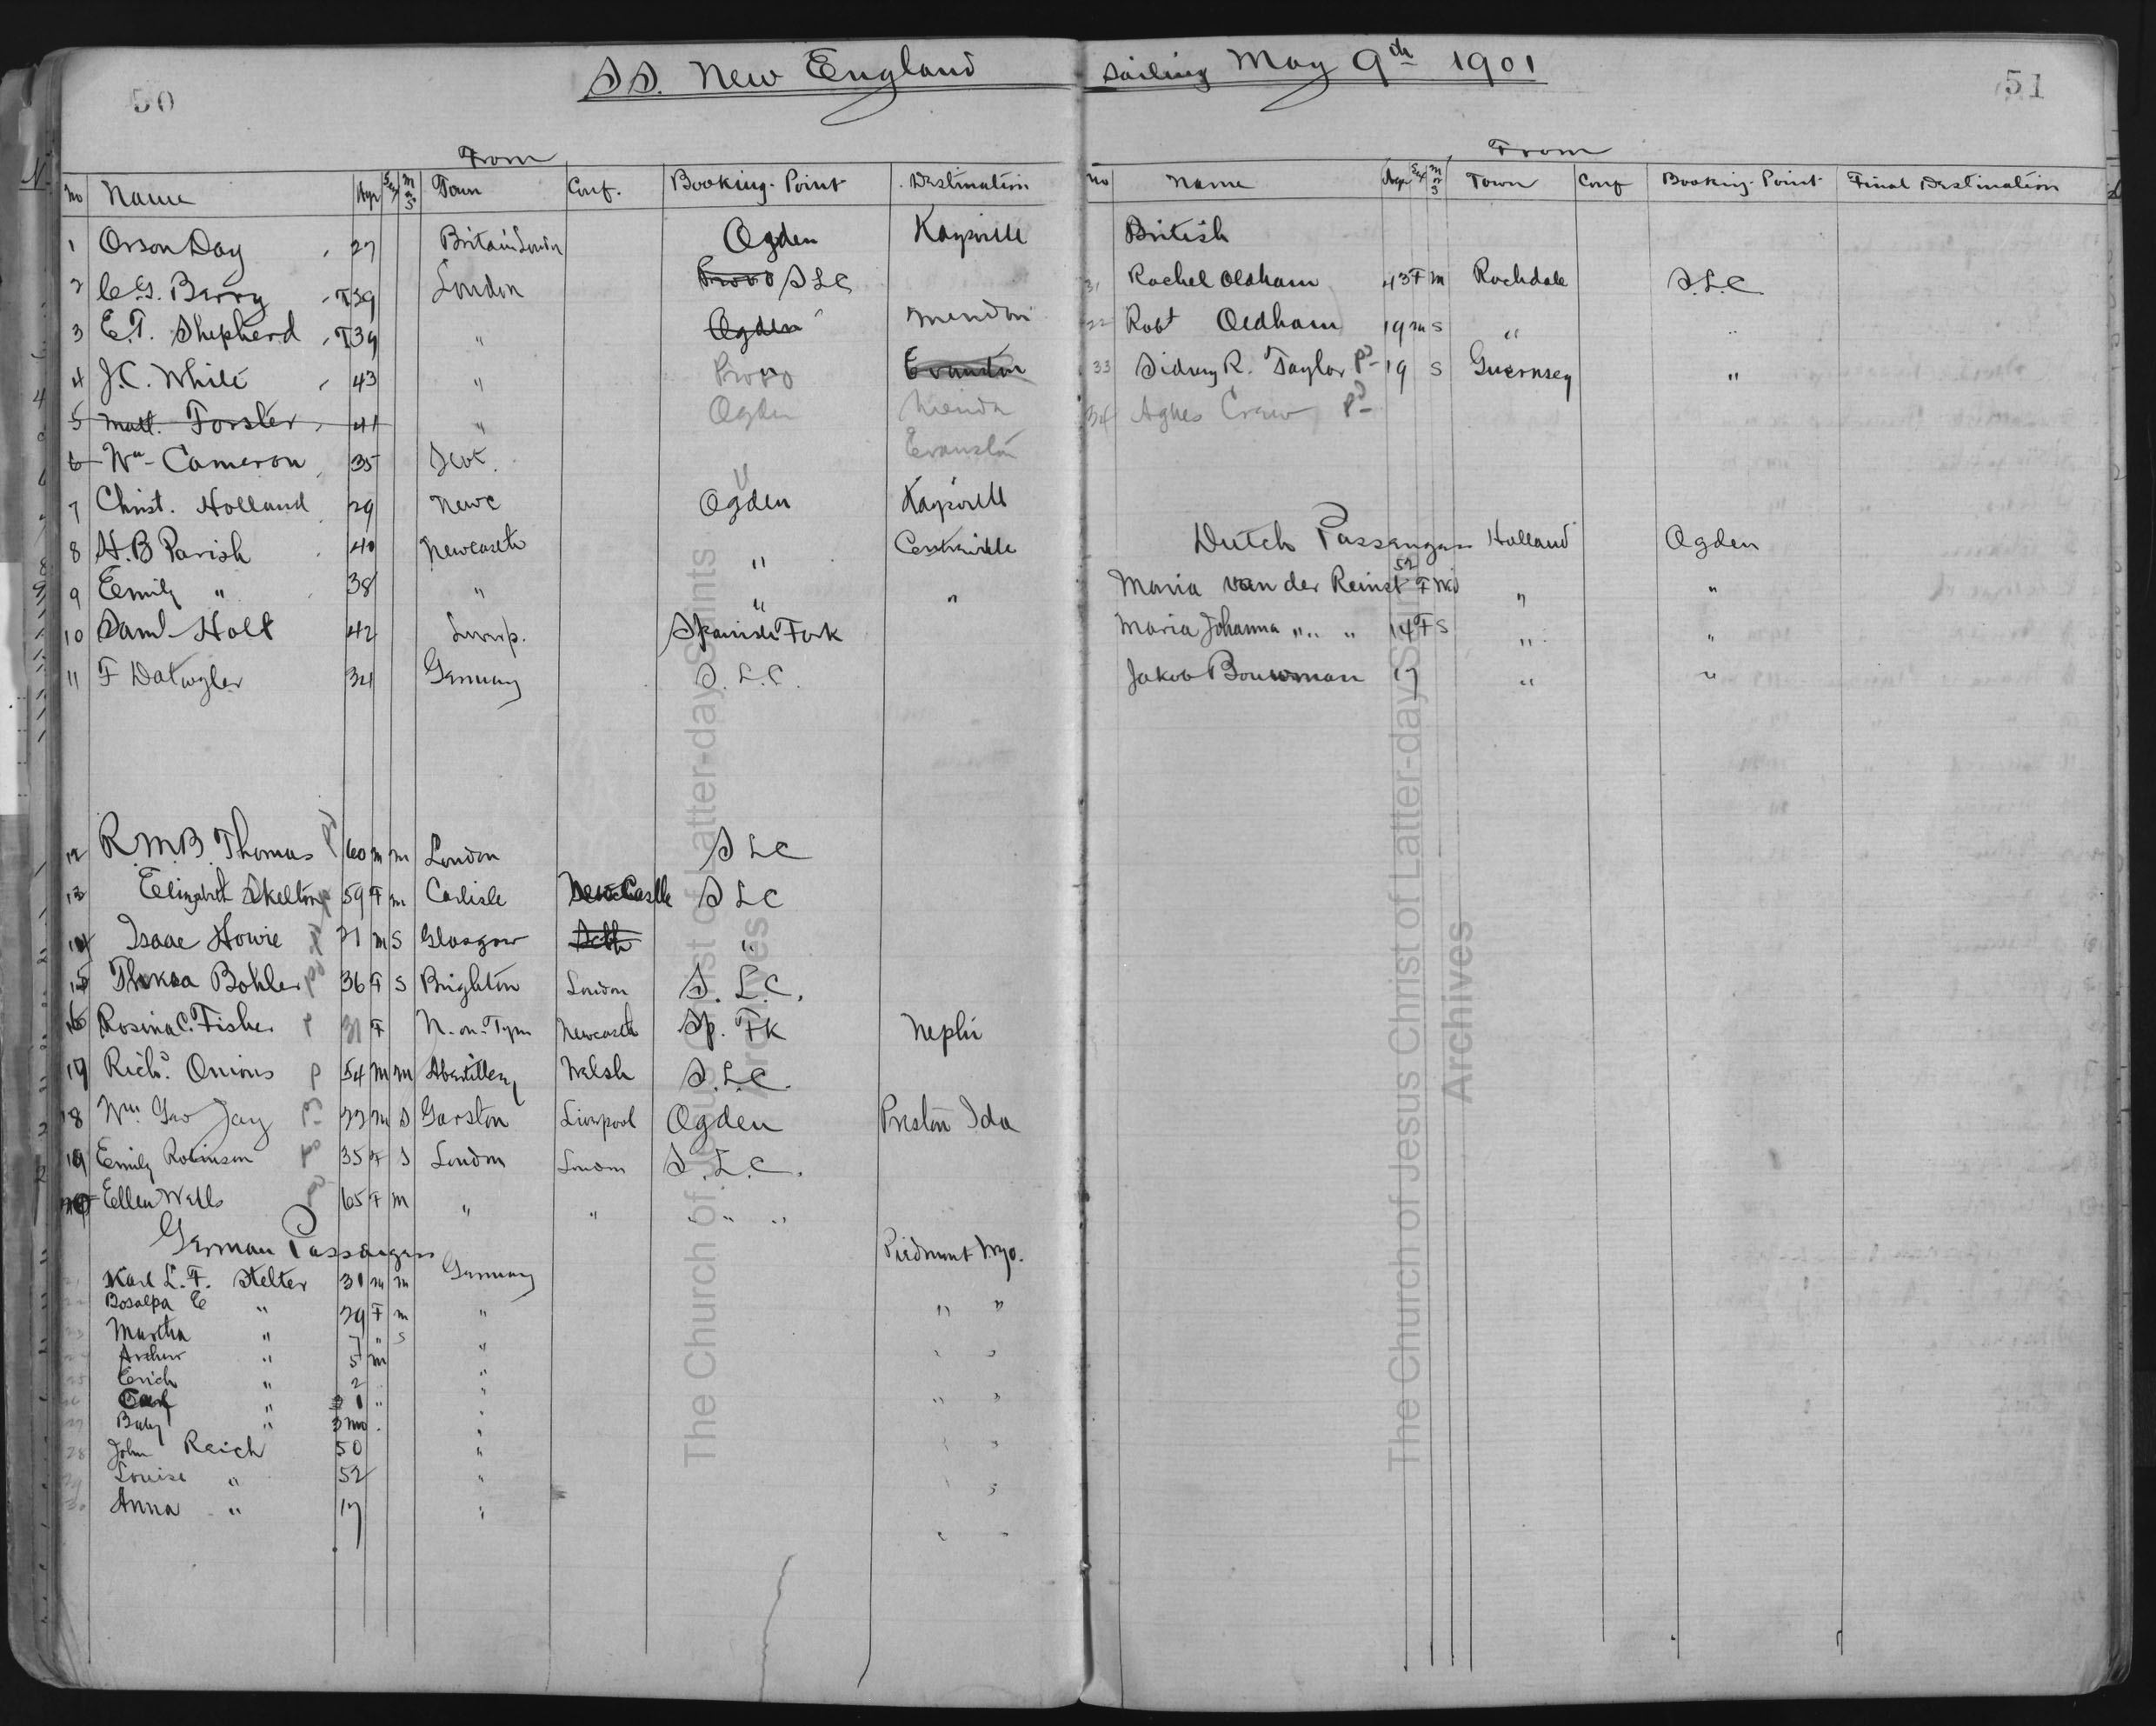 50
S.S. New England
From
No Name Age Sex M or S Town Conf. Booking Point Destination
1 Orson Day 27 Britain London Ogden Kaysville
2 C.G. Berry T39 London Provo SLC
3 E.T. Shepherd T39 " Ogden Mendon
4 J.C. White 43 " Provo Evanston
5 Matt. Forster 41 " Ogden Mendon
6 Wm Cameron 35 Scot. Evanston
7 Christ. Holland 29 Newc Ogden Kaysville
8 H.B Parish 40 Newcastle " Centerville
9 Emily " 38 " " "
10 Saml Holt 42 Liverp. Spanish Fork
11 F Datwyler 34 Germany S.L.C.
12 R.M.B. Thomas Pd 60 m m London SLC
13 Elizabeth Skelton 59 F m Carlisle NewCastle SLC
14 Isaac Howie 21 m S Glasgow "
15 Bohler Pd 36 F S Brighton London S.L.C.
16 Rosina C. Fisher P 31 F N.-on-Tyne Newcastle Sp. Fk Nephi
17 Richd. Onions P 54 m m Abertillery Welsh S.L.C.
18 Wm Geo Jay 22 m S Garston Liverpool Ogden Preston Ida
19 Emily Robinson 35 F S London London S.L.C.
20 Ellen Wells 65 F m " " " " "
German Passengers Piedmont Wyo.
21 Karl L. F. Stelter 31 m m Germany
E " 29 F m " " "
Martha " 7 " S "
Arthur " 5 m " " "
25 Erich " 2 "
" 1 " " " "
27 Baby " 3 mo "
28 John Reich 50 " " "
Louise " 52 " " "
Anna " 17 " " "
51
Sailing May 9th 1901
From
No Name Age Sex M or S Town Conf Booking Point Final Destination
British
31 Rachel Oldham 43 F m Rochdale S.L.C
Robt Oldham 19 m S " "
33 Sidney R. Taylor Pd 19 S Guernsey "
34 Agnes Pd
Dutch Passengers Holland Ogden
52
Maria van der Reinst F Wid " "
Maria Johanna " " " 14 F S " "
Jakob Bouwman 17 " "
The Church of Jesus Christ of Latter-day Saints
Archives
The Church of Jesus Christ of Latter-day Saints
Archives